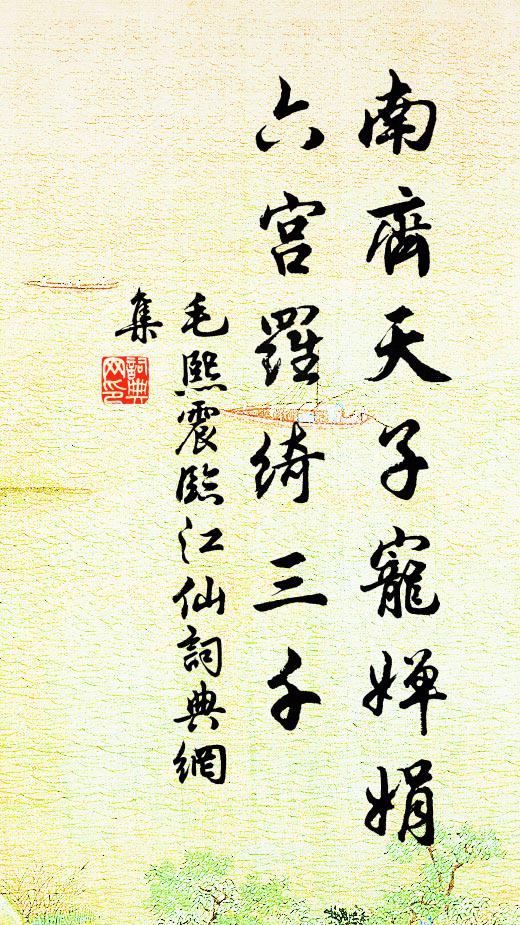 南齊天子寵嬋娟
六宮羅綺三千
毛熙震臨江仙詞典網
集
詞典
网印